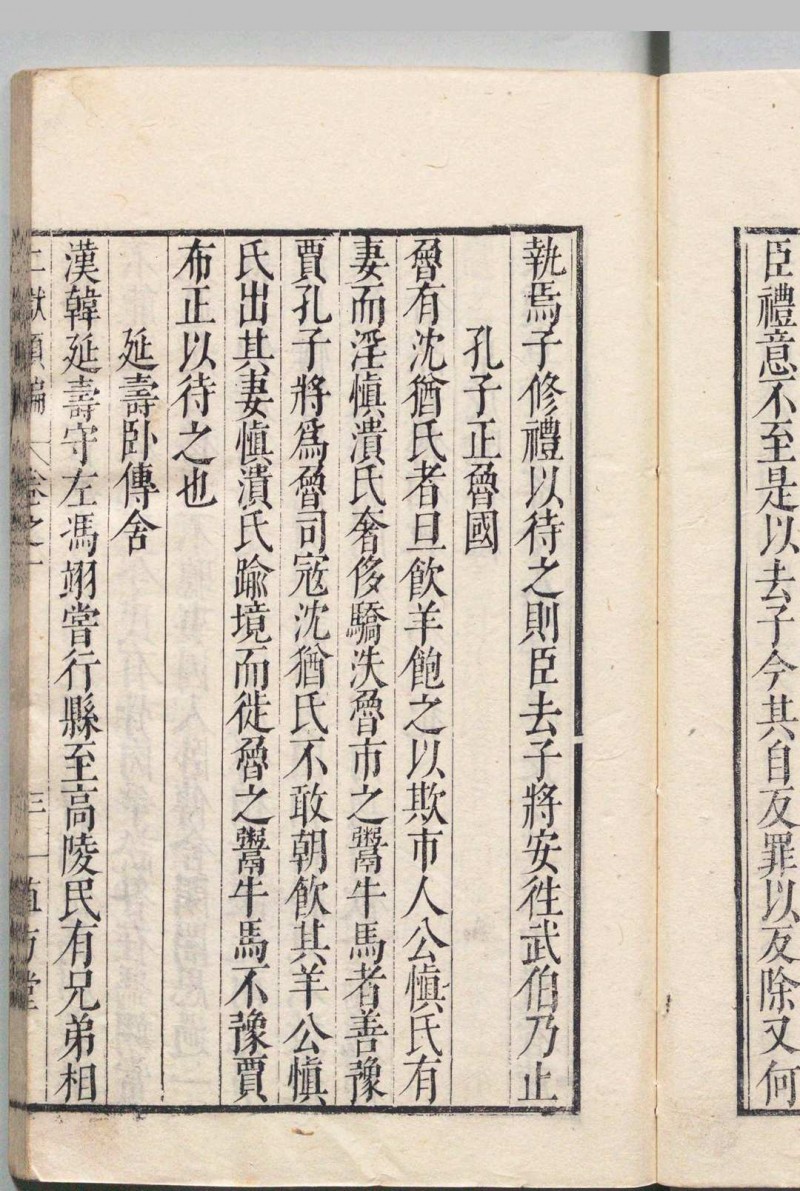 臣禮意不至是以去子今其自反罪以反除又何
執焉子修禮以待之則臣去子將安往武伯乃止
孔子正魯國
魯有沈猶氏者旦飲羊飽之以欺市人公慎氏有
妻而淫慎潰氏奢侈驕泆魯市之鬻牛馬者善豫
賈孔子將爲魯司寇沈猶氏不敢朝飲其羊公慎
氏出其妻慎潰氏踰境而徙魯之鬻牛馬不豫賈
布正以待之也
延壽卧傳舍
漢韓延壽守左馮翊嘗行縣至高陵民有兄弟相
卷之一 三 直方堂